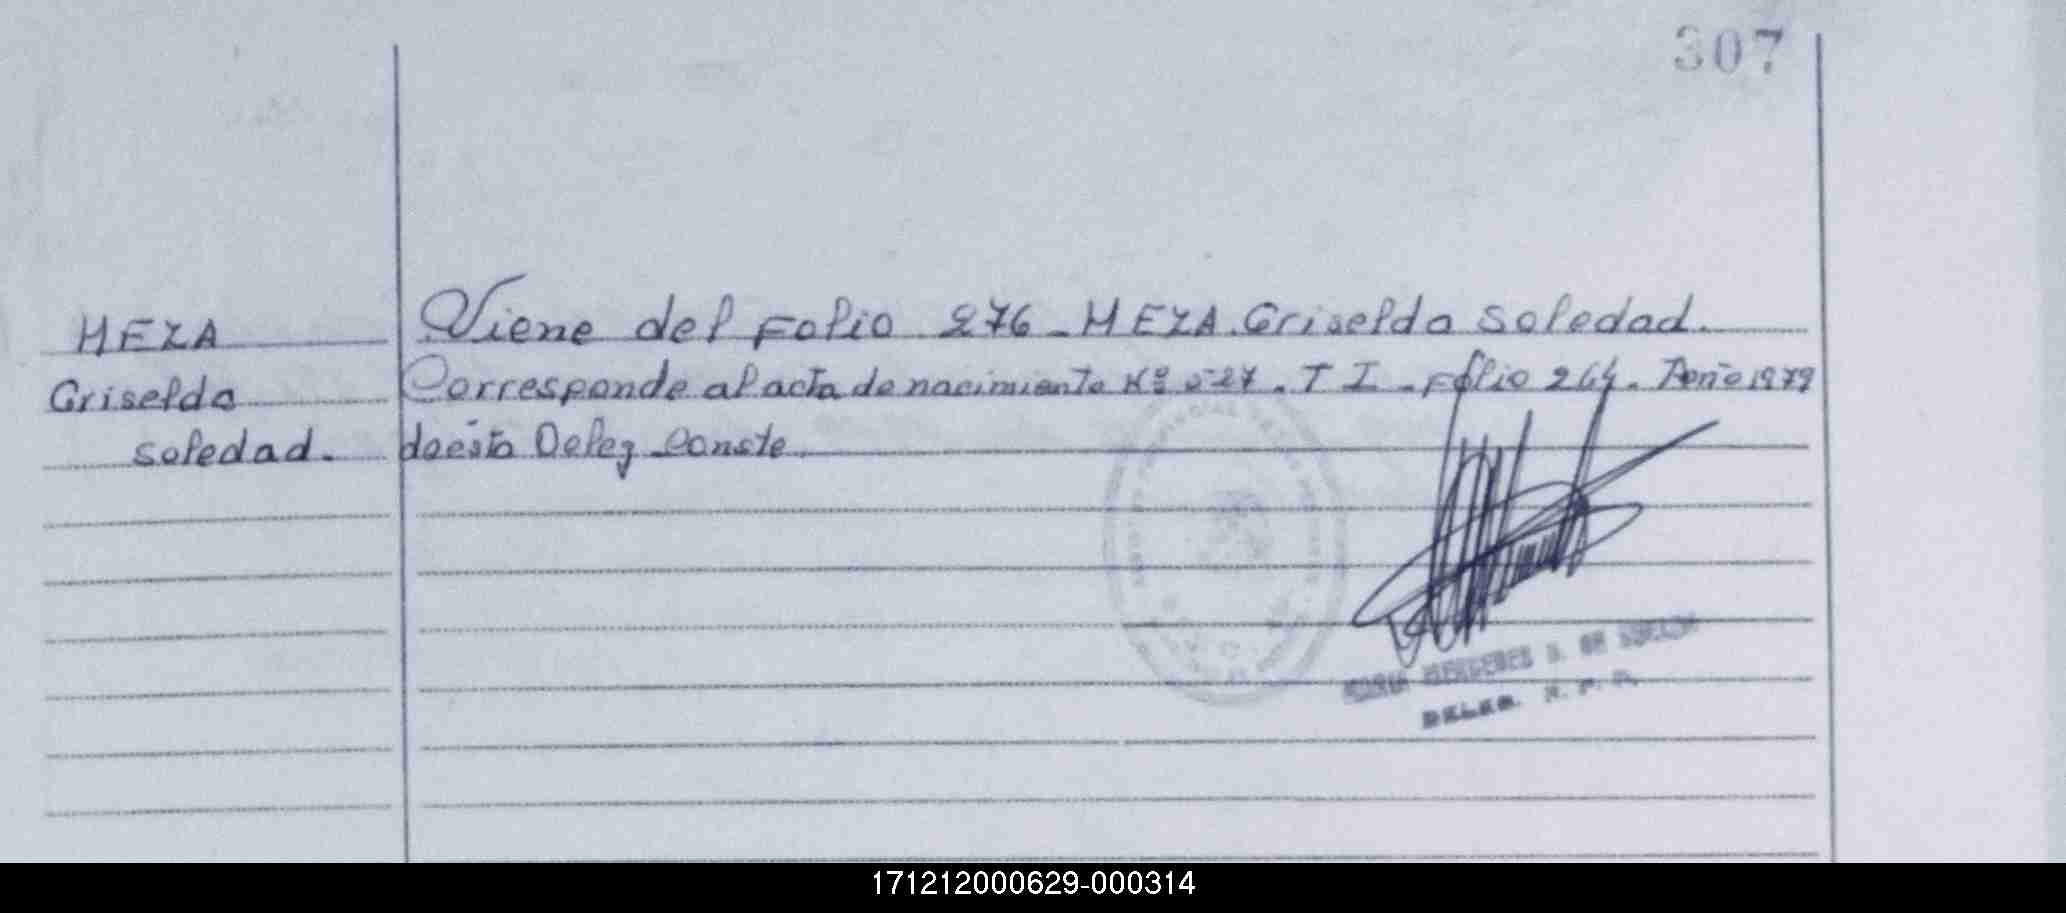 307
MEZA
Griselda
Soledad.
Viene del Folio 276 - MEZA. Griselda Soledad.
Corresponde al acta de nacimiento Nº 527. T I - Folio 264. Año 1979
de esta Deleg. Conste.
MARIA MERCEDES
DELEG. R. P. P.
171212000629-000314